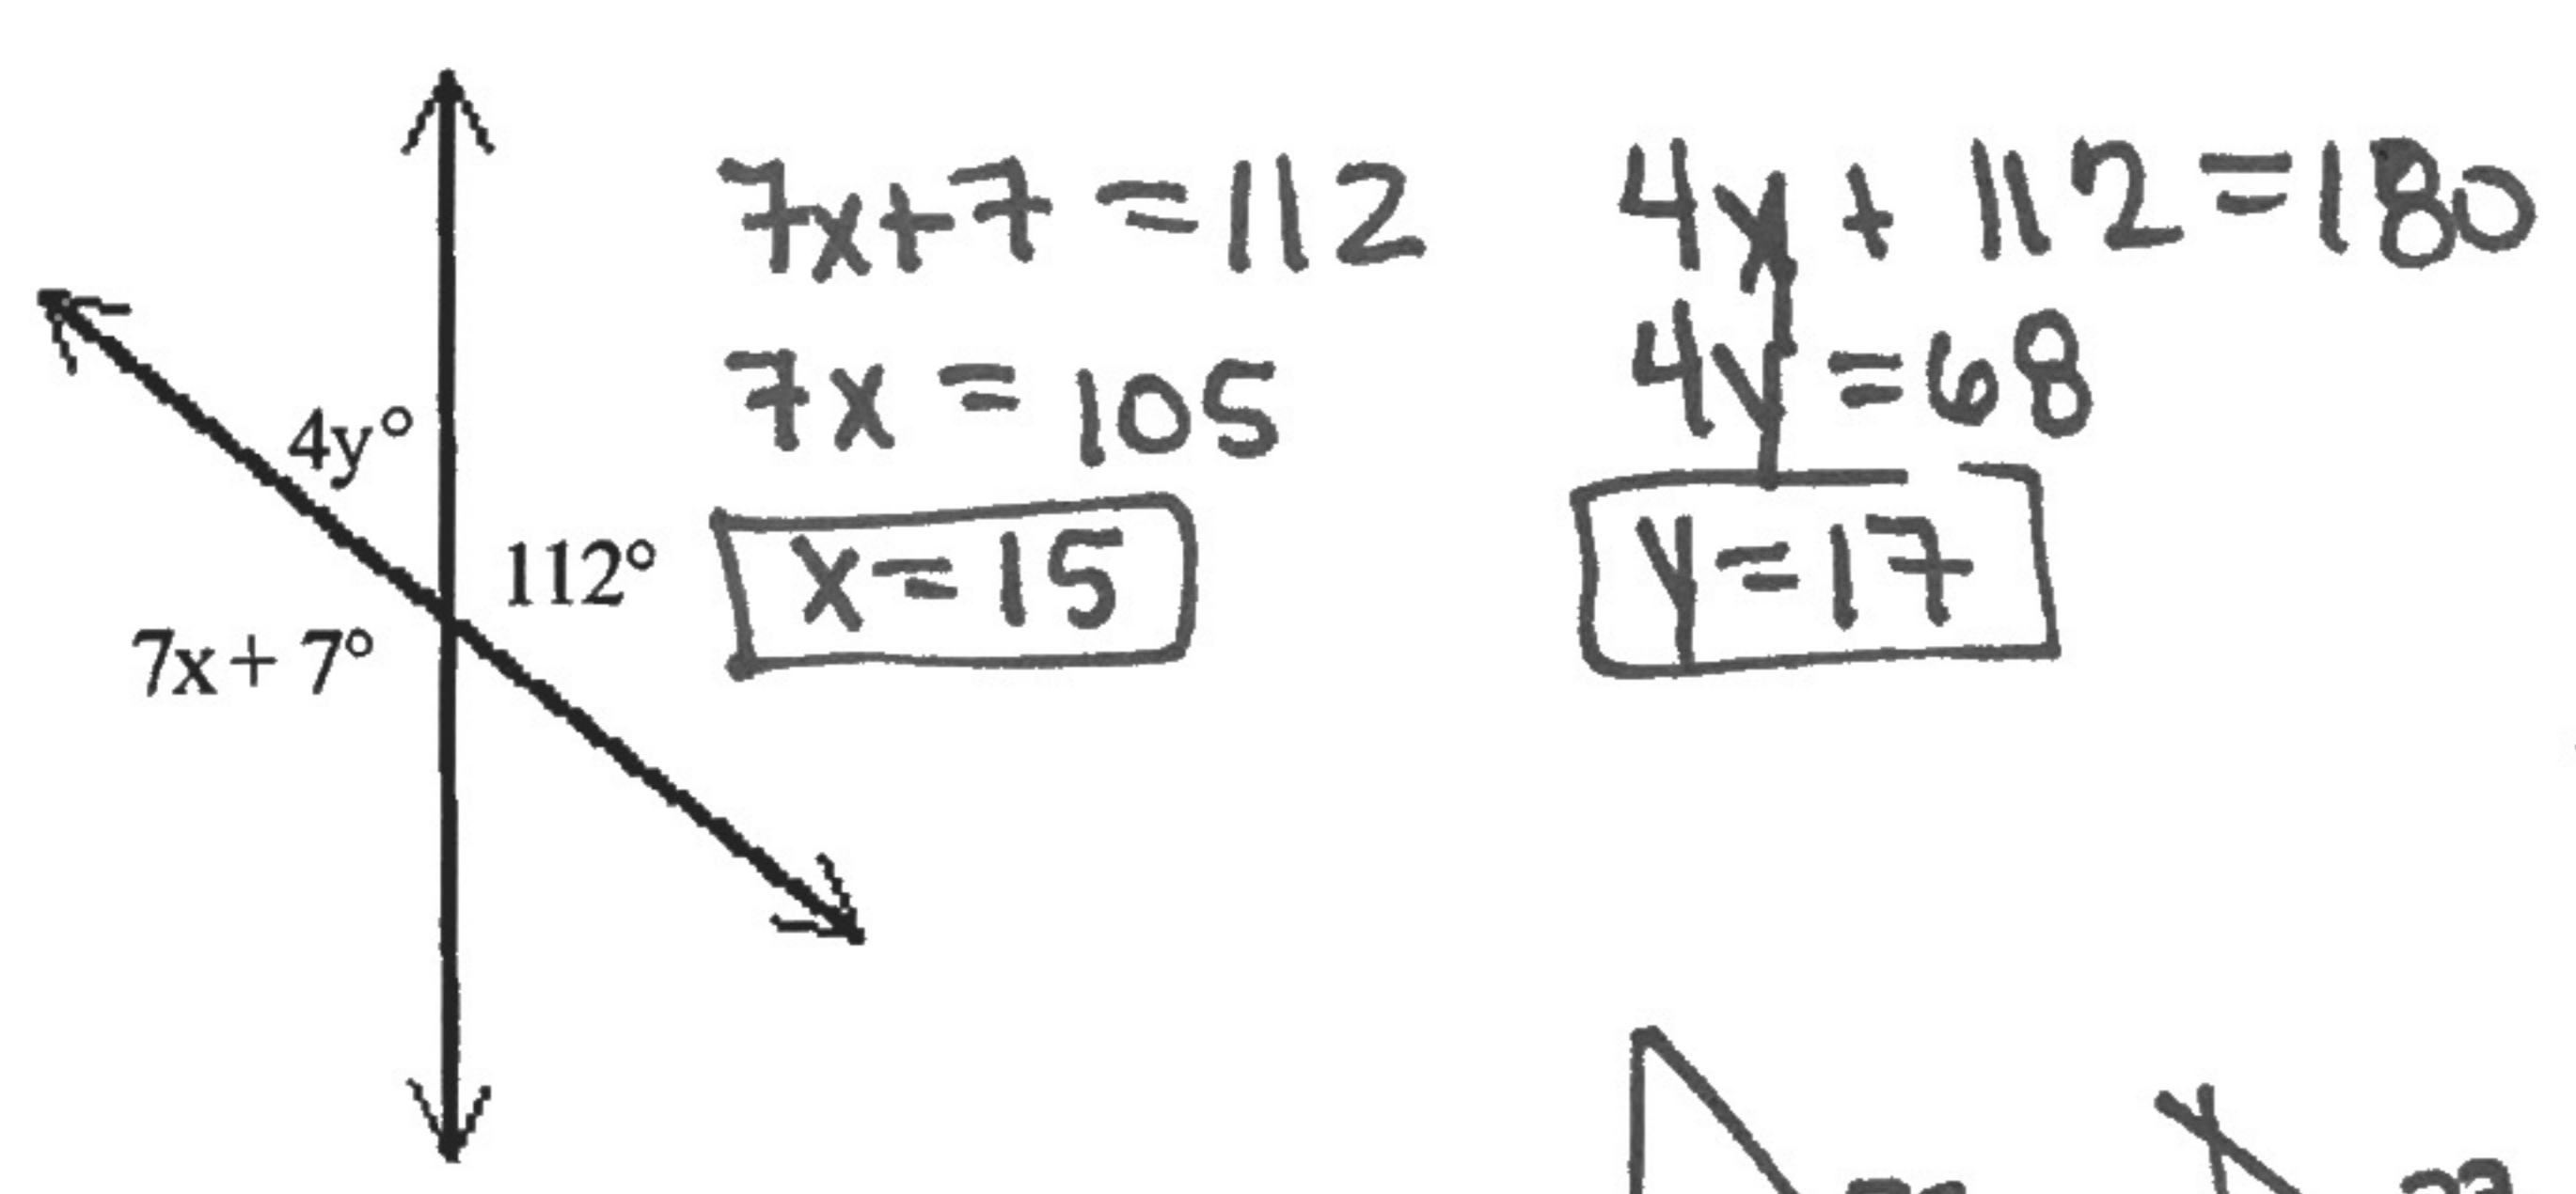 4y°
112°
7x + 7°
7x+7=112
7x=105
x=15
4y+112=180
4y=68
y=17